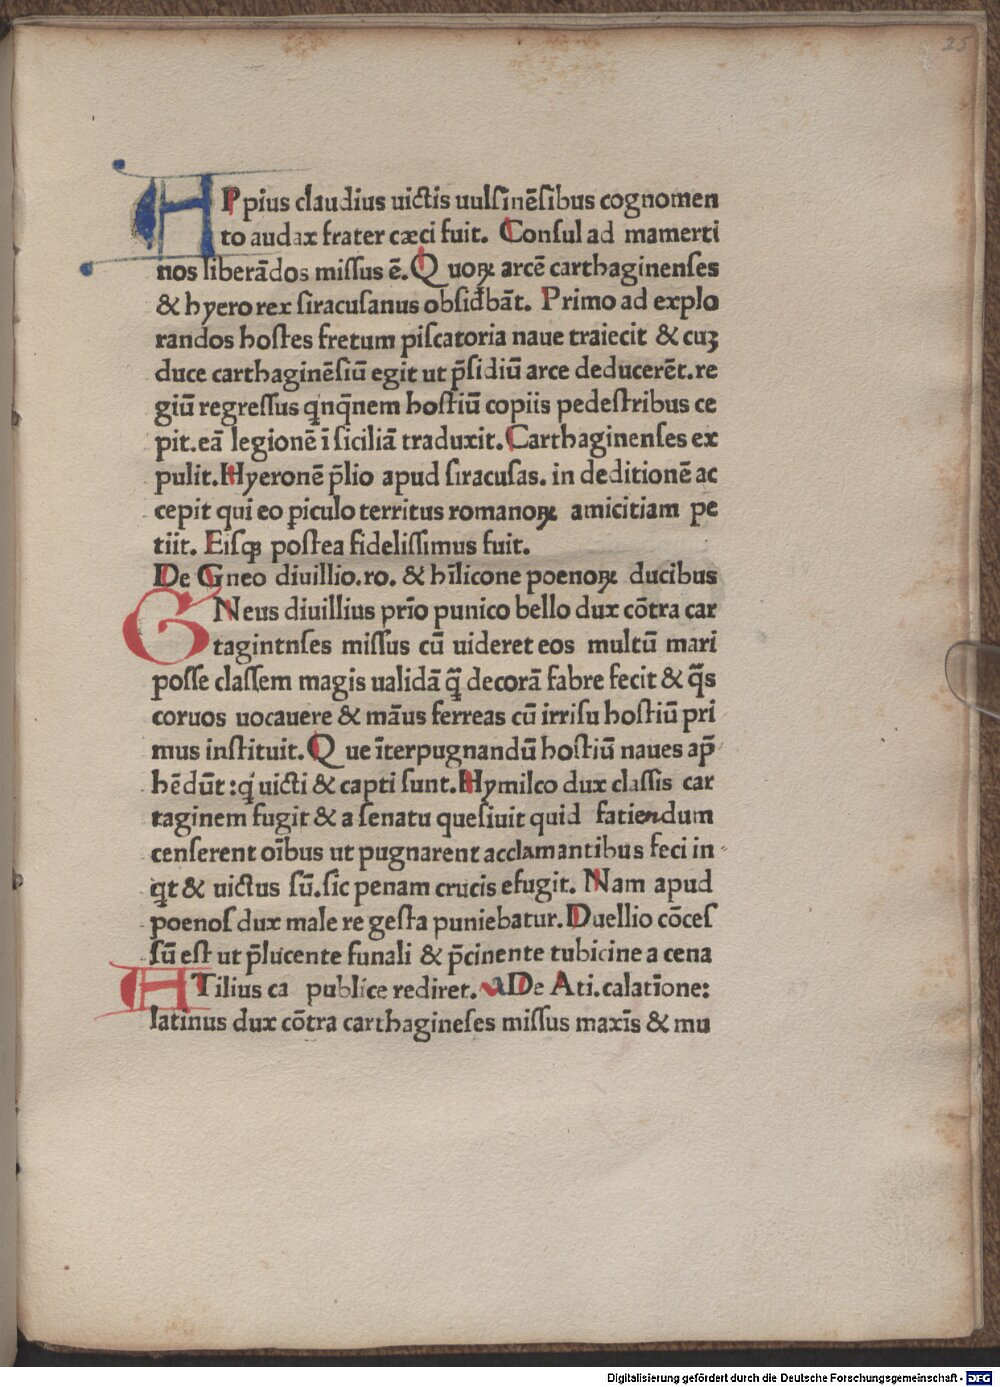 25
APpius claudius uictis uulsinēsibus cognomen
to audax frater cæci fuit. Consul ad mamerti
nos liberādos missus ē. Q uoꝝ arcē carthaginenses
& hyero rex siracusanus obsidbāt. Primo ad explo
randos hostes fretum piscatoria naue traiecit & cuꝫ
duce carthaginēsiū egit ut p̄sidiū arce deducerēt. re
giū regressus qnq̄nem hostiū copiis pedestribus ce
pit. eā legionē ī siciliā traduxit. Carthaginenses ex
pulit. Hyeronē p̄lio apud siracusas. in deditionē ac
cepit qui eo ꝑiculo territus romanoꝝ amicitiam pe
tiit. Eisqꝫ postea fidelissimus fuit.
De Gneo diuillio. ro. & hīlicone poenoꝝ ducibus
GNeus diuillius prīo punico bello dux cōtra car
tagintnses missus cū uideret eos multū mari
posse classem magis ualidā q̄ decorā fabre fecit & q̄s
coruos uocauere & māus ferreas cū irrisu hostiū pri
mus instituit. Q ue īterpugnandū hostiū naues ap̄
hēdūt: q uicti & capti sunt. Hymilco dux classis car
taginem fugit & a senatu quesiuit quid fatiendum
censerent oībus ut pugnarent acclamantibus feci in
qt & uictus sū. sic penam crucis efugit. Nam apud
poenos dux male re gesta puniebatur. Duellio cōces
sū est ut p̄lucente funali & p̄cinente tubicine a cena
ATilius ca publice rediret. De Ati. calatīone:
latinus dux cōtra carthagineses missus maxīs & mu
Digitalisierung gefördert durch die Deutsche Forschungsgemeinschaft - DFG